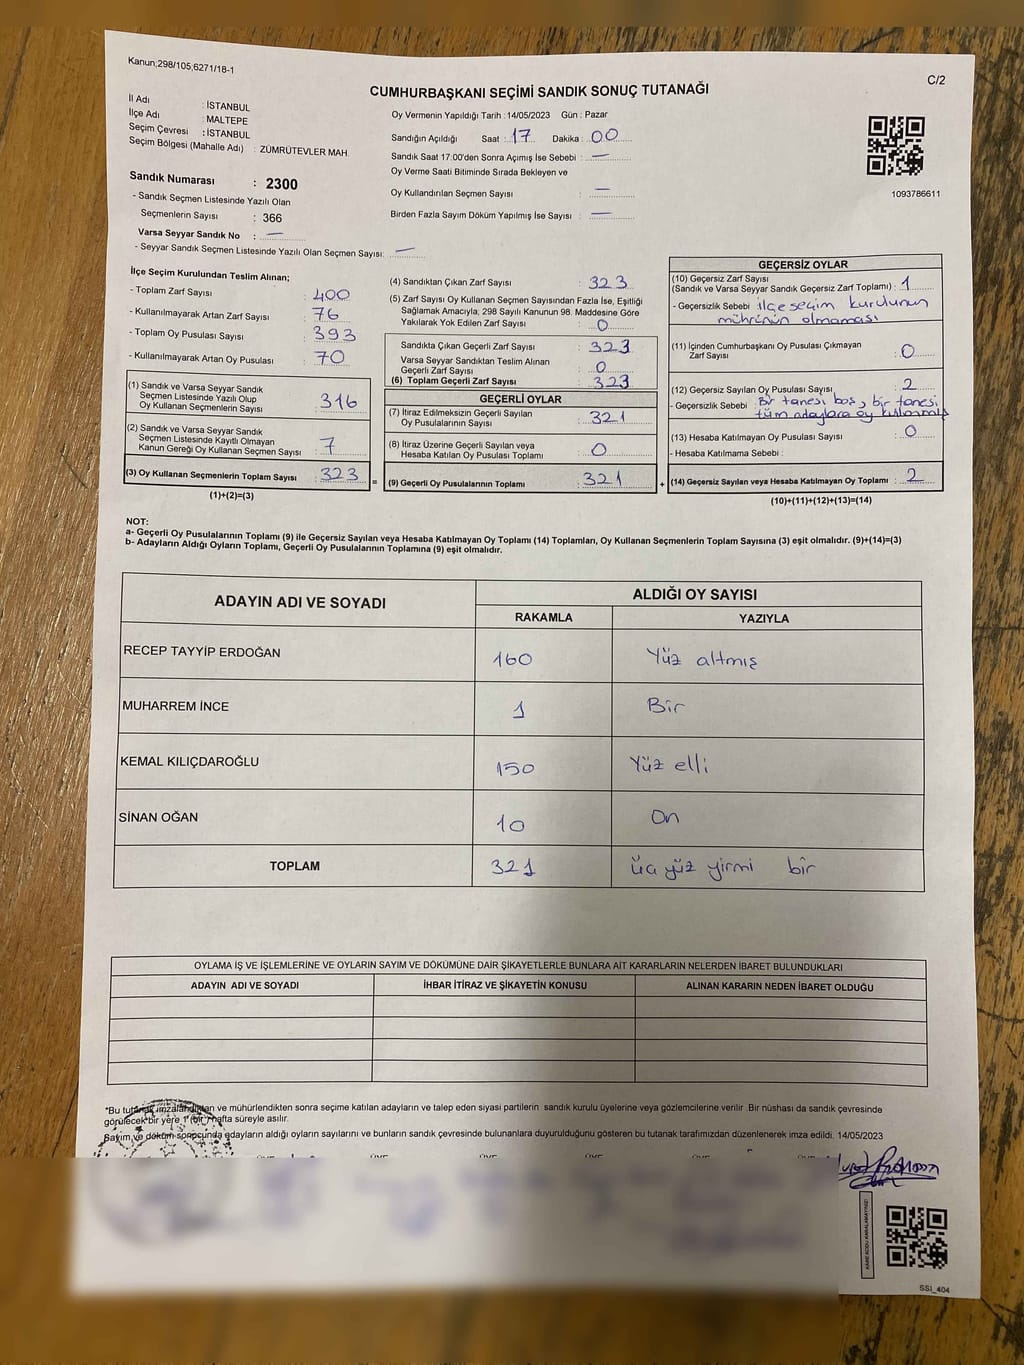 Kanun;298/105;6271/18-1
C/2
CUMHURBAŞKANI SEÇİMİ SANDIK SONUÇ TUTANAĞI
İl Adı : İSTANBUL
İlçe Adı : MALTEPE
Seçim Çevresi : İSTANBUL
Seçim Bölgesi (Mahalle Adı) : ZÜMRÜTEVLER MAH.
Sandık Numarası : 2300
- Sandık Seçmen Listesinde Yazılı Olan
Seçmenlerin Sayısı : 366
Varsa Seyyar Sandık No : —
- Seyyar Sandık Seçmen Listesinde Yazılı Olan Seçmen Sayısı: —
Oy Vermenin Yapıldığı Tarih : 14/05/2023 Gün : Pazar
Sandığın Açıldığı Saat : 17 Dakika : 00
Sandık Saat 17:00'den Sonra Açımış İse Sebebi : —
Oy Verme Saati Bitiminde Sırada Bekleyen ve
Oy Kullandırılan Seçmen Sayısı : —
Birden Fazla Sayım Döküm Yapılmış İse Sayısı : —
1093786611
İlçe Seçim Kurulundan Teslim Alınan;
- Toplam Zarf Sayısı : 400
- Kullanılmayarak Artan Zarf Sayısı : 76
- Toplam Oy Pusulası Sayısı : 393
- Kullanılmayarak Artan Oy Pusulası : 70
(1) Sandık ve Varsa Seyyar Sandık
Seçmen Listesinde Yazılı Olup
Oy Kullanan Seçmenlerin Sayısı : 316
(2) Sandık ve Varsa Seyyar Sandık
Seçmen Listesinde Kayıtlı Olmayan
Kanun Gereği Oy Kullanan Seçmen Sayısı : 7
(3) Oy Kullanan Seçmenlerin Toplam Sayısı : 323 =
(1)+(2)=(3)
(4) Sandıktan Çıkan Zarf Sayısı : 323
(5) Zarf Sayısı Oy Kullanan Seçmen Sayısından Fazla İse, Eşitliği
Sağlamak Amacıyla; 298 Sayılı Kanunun 98. Maddesine Göre
Yakılarak Yok Edilen Zarf Sayısı : 0
Sandıkta Çıkan Geçerli Zarf Sayısı : 323
Varsa Seyyar Sandıktan Teslim Alınan
Geçerli Zarf Sayısı : 0
(6) Toplam Geçerli Zarf Sayısı : 323
GEÇERLİ OYLAR
(7) İtiraz Edilmeksizin Geçerli Sayılan
Oy Pusulalarının Sayısı : 321
(8) İtiraz Üzerine Geçerli Sayılan veya
Hesaba Katılan Oy Pusulası Toplamı : 0
(9) Geçerli Oy Pusulalarının Toplamı : 321 +
GEÇERSİZ OYLAR
(10) Geçersiz Zarf Sayısı
(Sandık ve Varsa Seyyar Sandık Geçersiz Zarf Toplamı) : 1
- Geçersizlik Sebebi : ilçe seçim kurulunun
mührünün olmaması
(11) İçinden Cumhurbaşkanı Oy Pusulası Çıkmayan
Zarf Sayısı : 0
(12) Geçersiz Sayılan Oy Pusulası Sayısı : 2
- Geçersizlik Sebebi : Bir tanesi boş, bir tanesi
tüm adaylara oy
(13) Hesaba Katılmayan Oy Pusulası Sayısı : 0
- Hesaba Katılmama Sebebi :
(14) Geçersiz Sayılan veya Hesaba Katılmayan Oy Toplamı : 2
(10)+(11)+(12)+(13)=(14)
NOT:
a- Geçerli Oy Pusulalarının Toplamı (9) ile Geçersiz Sayılan veya Hesaba Katılmayan Oy Toplamı (14) Toplamları, Oy Kullanan Seçmenlerin Toplam Sayısına (3) eşit olmalıdır. (9)+(14)=(3)
b- Adayların Aldığı Oyların Toplamı, Geçerli Oy Pusulalarının Toplamına (9) eşit olmalıdır.
ADAYIN ADI VE SOYADI ALDIĞI OY SAYISI
RAKAMLA YAZIYLA
RECEP TAYYİP ERDOĞAN 160 Yüz altmış
MUHARREM İNCE 1 Bir
KEMAL KILIÇDAROĞLU 150 Yüz elli
SİNAN OĞAN 10 On
TOPLAM 321 üç yüz yirmi bir
OYLAMA İŞ VE İŞLEMLERİNE VE OYLARIN SAYIM VE DÖKÜMÜNE DAİR ŞİKAYETLERLE BUNLARA AİT KARARLARIN NELERDEN İBARET BULUNDUKLARI
ADAYIN ADI VE SOYADI İHBAR İTİRAZ VE ŞİKAYETİN KONUSU ALINAN KARARIN NEDEN İBARET OLDUĞU
*Bu tutanak imzalandıktan ve mühürlendikten sonra seçime katılan adayların ve talep eden siyasi partilerin sandık kurulu üyelerine veya gözlemcilerine verilir .Bir nüshası da sandık çevresinde
görülecek bir yere 1 (bir) hafta süreyle asılır.
Sayım ve döküm sonucunda adayların aldığı oyların sayılarını ve bunların sandık çevresinde bulunanlara duyurulduğunu gösteren bu tutanak tarafımızdan düzenlenerek imza edildi. 14/05/2023
SSI_404